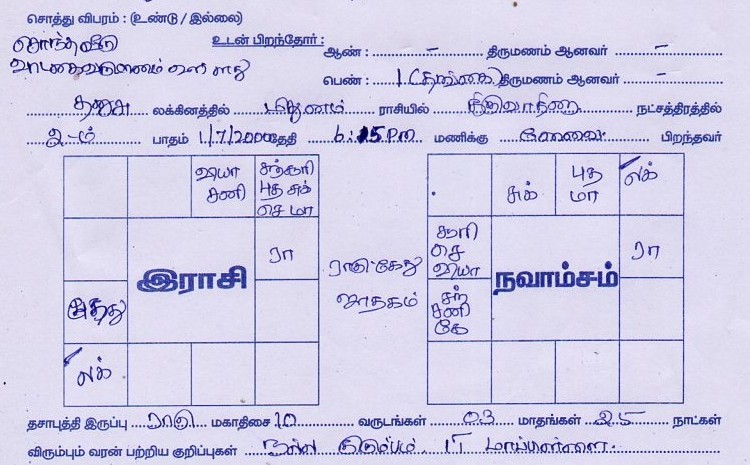 சொத்து விபரம் : (உண்டு / இல்லை)
சொந்த வீடு உடன் பிறந்தோர் : ஆண் : – திருமணம் ஆனவர் –
வாடகை வருமானம் உள்ளது
பெண் : 1 (தங்கை) திருமணம் ஆனவர் –
தனுசு லக்கினத்தில் மிதுனம் ராசியில் திருவாதிரை நட்சத்திரத்தில்
2-ம் பாதம் 1/7/2000 தேதி 6:15 PM மணிக்கு பிறந்தவர்
வியா சனி
சந் சூரி புத சுக் செ மா
ரா
இராசி
கேது
லக்
ராகு-கேது ஜாதகம்
சுக்
புத மா
லக்
சூரி செ வியா
ரா
நவாம்சம்
சந் சனி கே
தசாபுத்தி இருப்பு ராகு மகாதிசை 10 வருடங்கள் 03 மாதங்கள் 25 நாட்கள்
விரும்பும் வரன் பற்றிய குறிப்புகள் நல்ல குடும்பம். IT மாப்பிள்ளை.